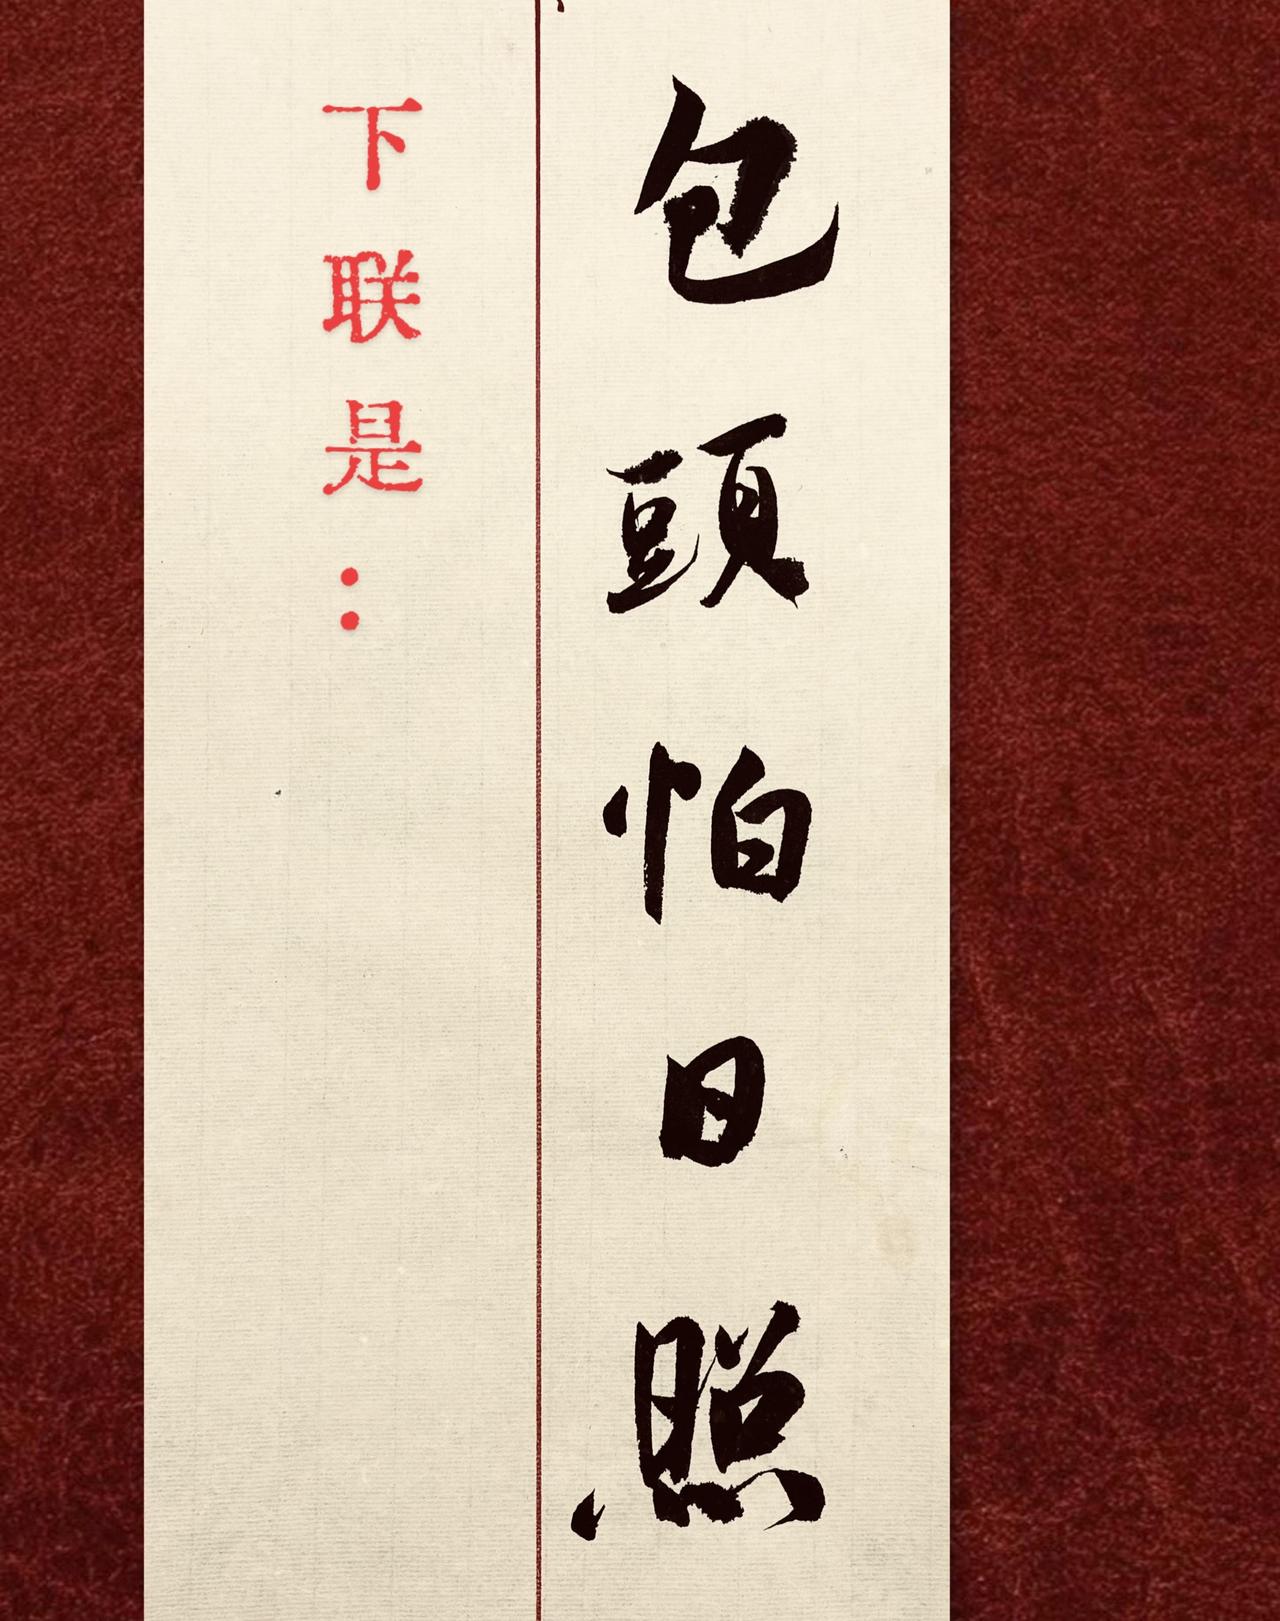 包頭怕日照
下联是：